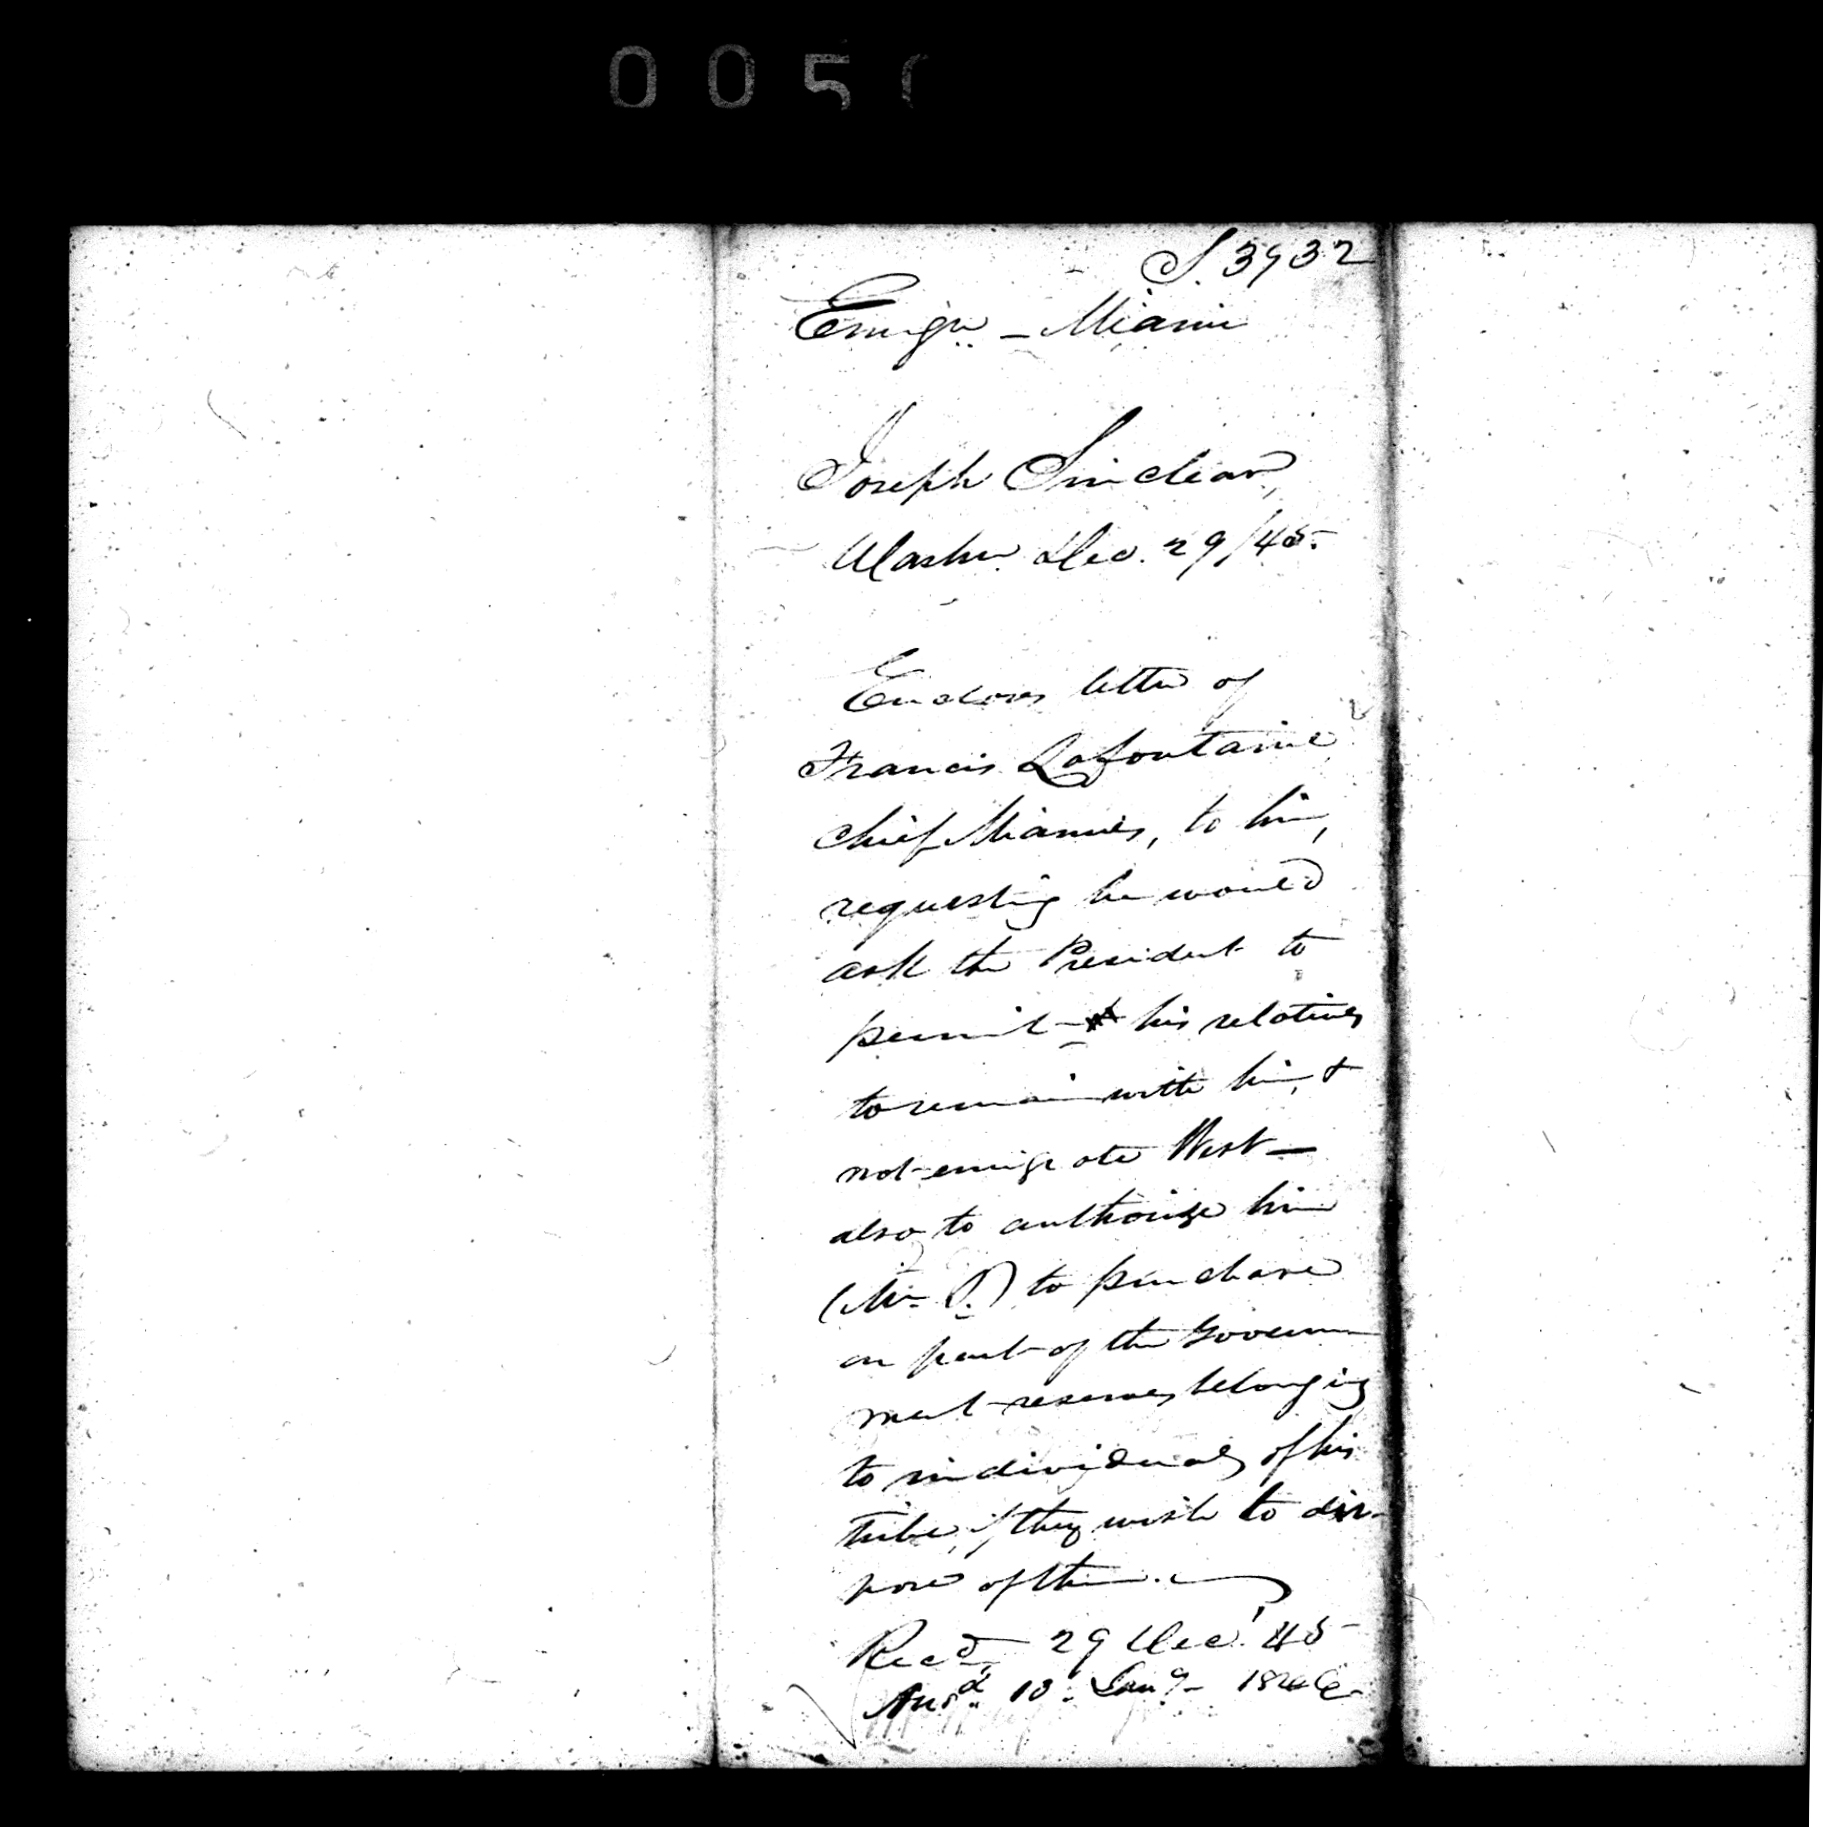 005
S. 3932
Emign – Miami
Joseph Sinclear,
Washn. Dec. 29/45.
Encloses letter of
Francis Lafontaine
chief Miamies, to him,
requesting he would
ask the President to
permit his relatives
to remain with him, &
not emigrate West —
also to authorize him
(Mr. S.) to purchase
on part of the Govern
ment reserves belonging
to individuals of his
tribe, if they wish to dis-
pose of them.
Recd. 29 Dec. '45
Ansd. 10. Jany. 1846